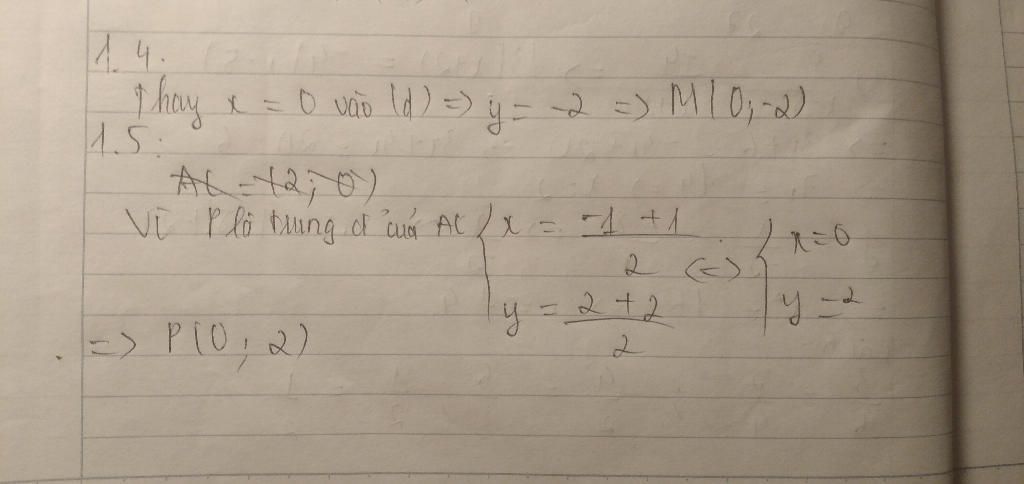 1.4.
Thay x = 0 vào (d) => y = -2 => M(0; -2)
1.5:
AC = (2; 0)
Vì P là trung đ' của AC { x = (-1 + 1)/2 <=> { x = 0
y = (2 + 2)/2 y = 2
=> P(0; 2)